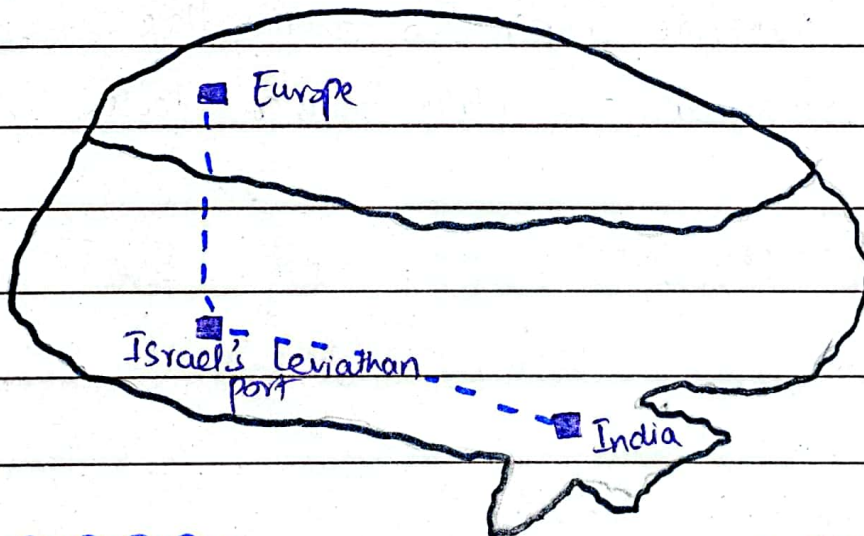 Europe
Israel's Leviathan
port
India